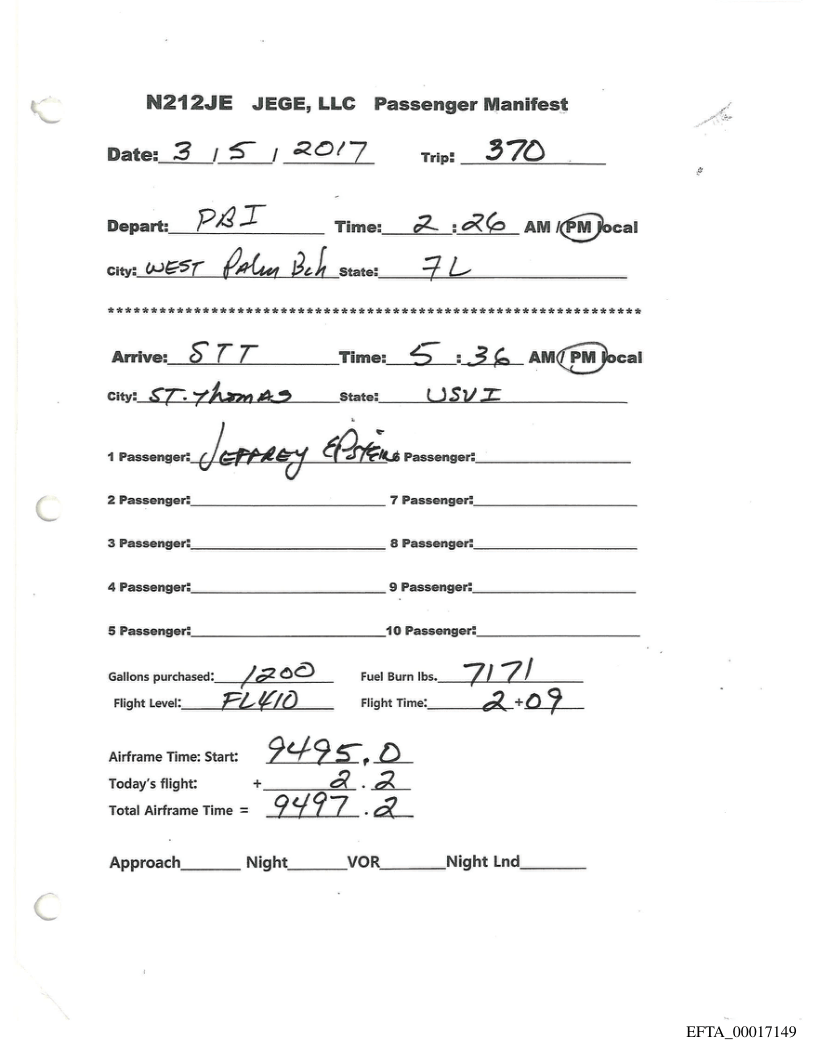 N212JE JEGE, LLC Passenger Manifest
Date: 3 / 5 / 2017 Trip: 370
Depart: PBI Time: 2 : 26 AM / PM local
City: WEST Palm Bch State: FL
******************************************************************
Arrive: STT Time: 5 : 36 AM / PM local
City: ST. Thomas State: USVI
1 Passenger: JEFFREY EPSTEIN 6 Passenger:
2 Passenger: 7 Passenger:
3 Passenger: 8 Passenger:
4 Passenger: 9 Passenger:
5 Passenger: 10 Passenger:
Gallons purchased: 1200 Fuel Burn lbs. 7171
Flight Level: FL410 Flight Time: 2 + 09
Airframe Time: Start: 9495.0
Today's flight: + 2.2
Total Airframe Time = 9497.2
Approach Night VOR Night Lnd
EFTA_00017149